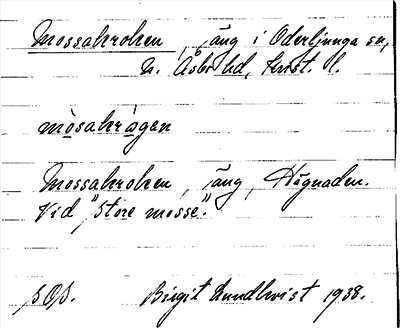 Mossakroken, äng i Oderljunga sn,
N. Åsbo hd, Krist. l.
mòsakrågen
Mossakroken, äng, Hägnaden.
Vid "Store mosse".
SOS. Birgit Lundkvist 1938.